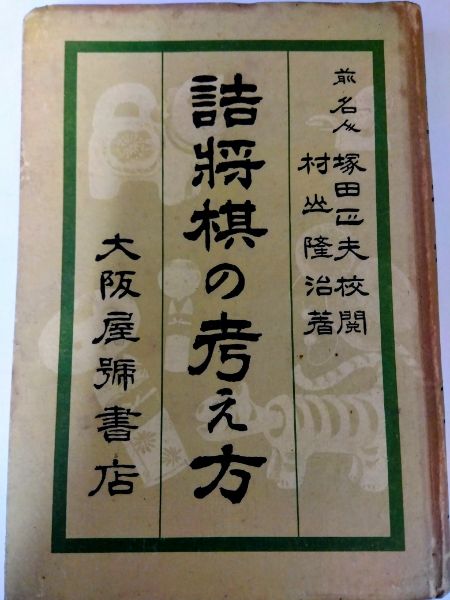 前名人 塚田正夫校閲
村山隆治著
詰將棋の考え方
大阪屋號書店